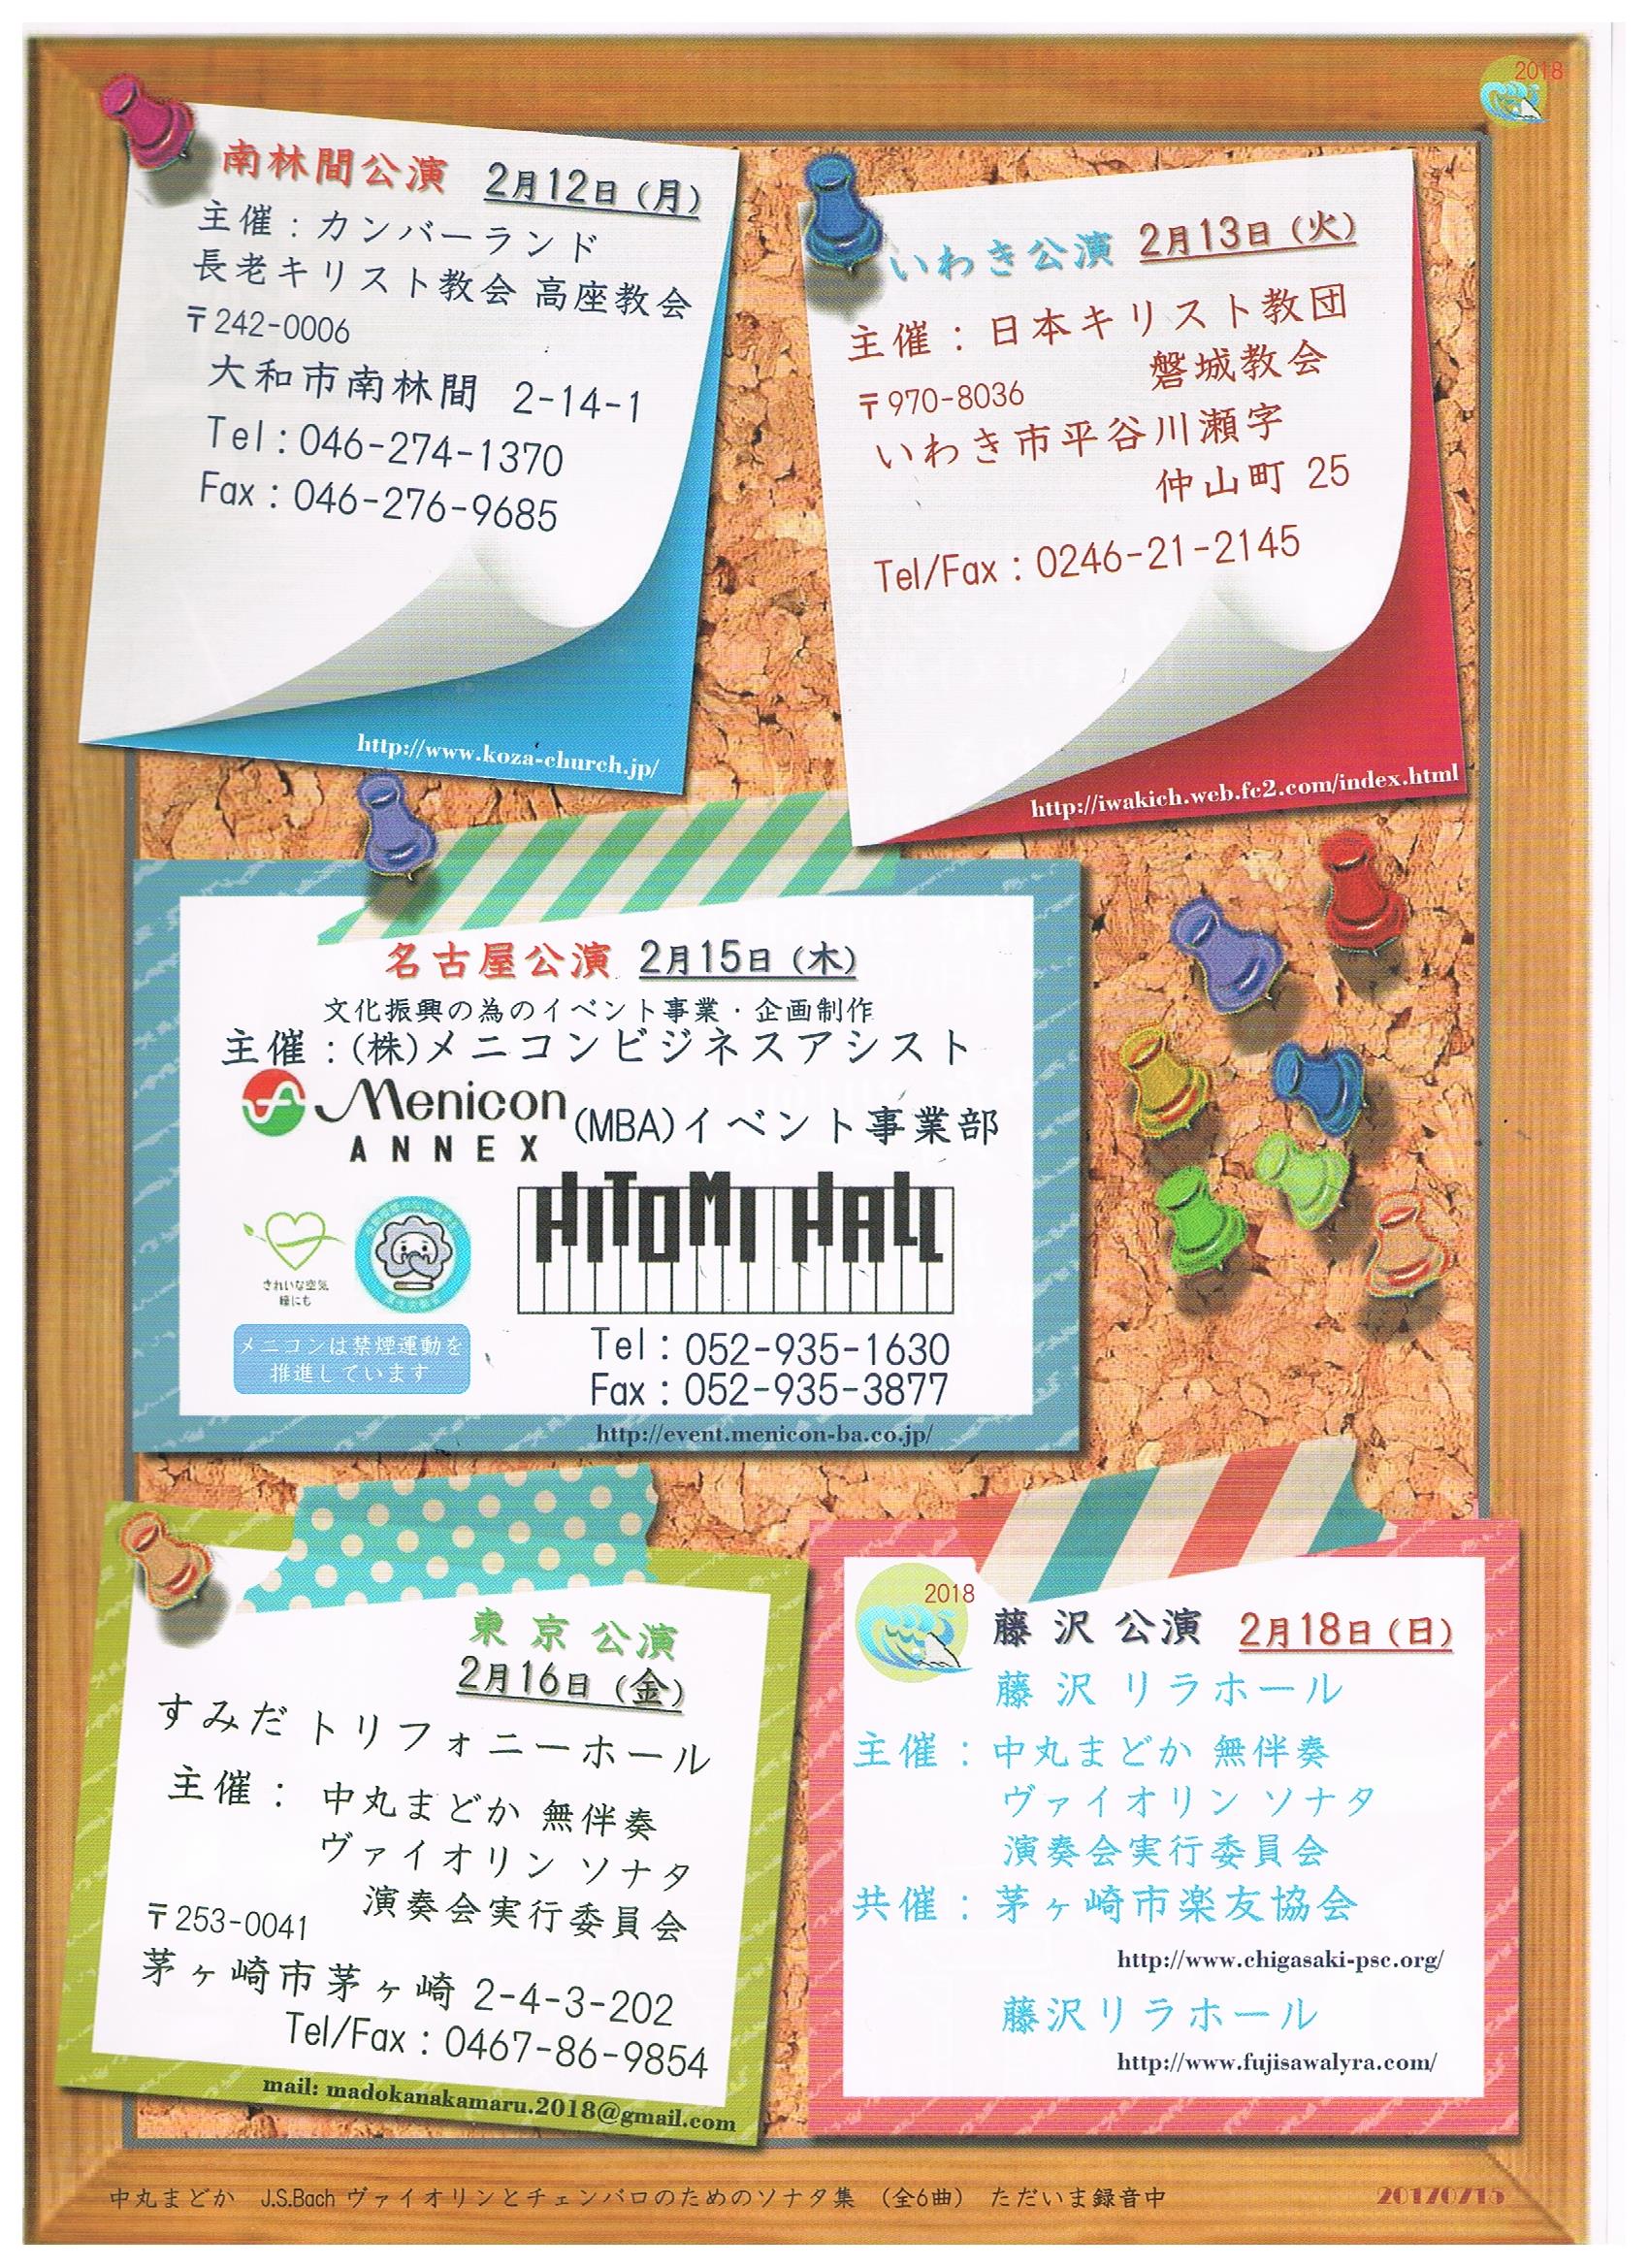 2018
南林間公演 2月12日(月)
主催:カンバーランド
長老キリスト教会 高座教会
〒242-0006
大和市南林間 2-14-1
Tel:046-274-1370
Fax:046-276-9685
http://www.koza-church.jp/
いわき公演 2月13日(火)
主催:日本キリスト教団
磐城教会
〒970-8036
いわき市平谷川瀬字
仲山町 25
Tel/Fax:0246-21-2145
http://iwakich.web.fc2.com/index.html
名古屋公演 2月15日(木)
文化振興の為のイベント事業・企画制作
主催:(株)メニコンビジネスアシスト
Menicon
ANNEX
(MBA)イベント事業部
HITOMI HALL
きれいな空気
瞳にも
メニコンは禁煙運動を
推進しています
Tel:052-935-1630
Fax:052-935-3877
http://event.menicon-ba.co.jp/
東京公演
2月16日(金)
すみだトリフォニーホール
主催: 中丸まどか 無伴奏
ヴァイオリン ソナタ
演奏会実行委員会
〒253-0041
茅ヶ崎市茅ヶ崎 2-4-3-202
Tel/Fax:0467-86-9854
mail: madokanakamaru.2018@gmail.com
2018
藤沢公演 2月18日(日)
藤沢リラホール
主催:中丸まどか 無伴奏
ヴァイオリン ソナタ
演奏会実行委員会
共催:茅ヶ崎市楽友協会
http://www.chigasaki-psc.org/
藤沢リラホール
http://www.fujisawalyra.com/
中丸まどか J.S.Bach ヴァイオリンとチェンバロのためのソナタ集 (全6曲) ただいま録音中
20170715